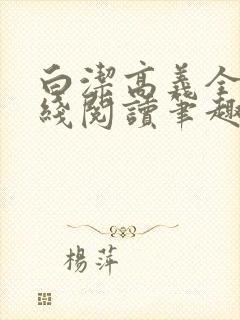 白潔高義全
綫閱讀筆趣
楊萍